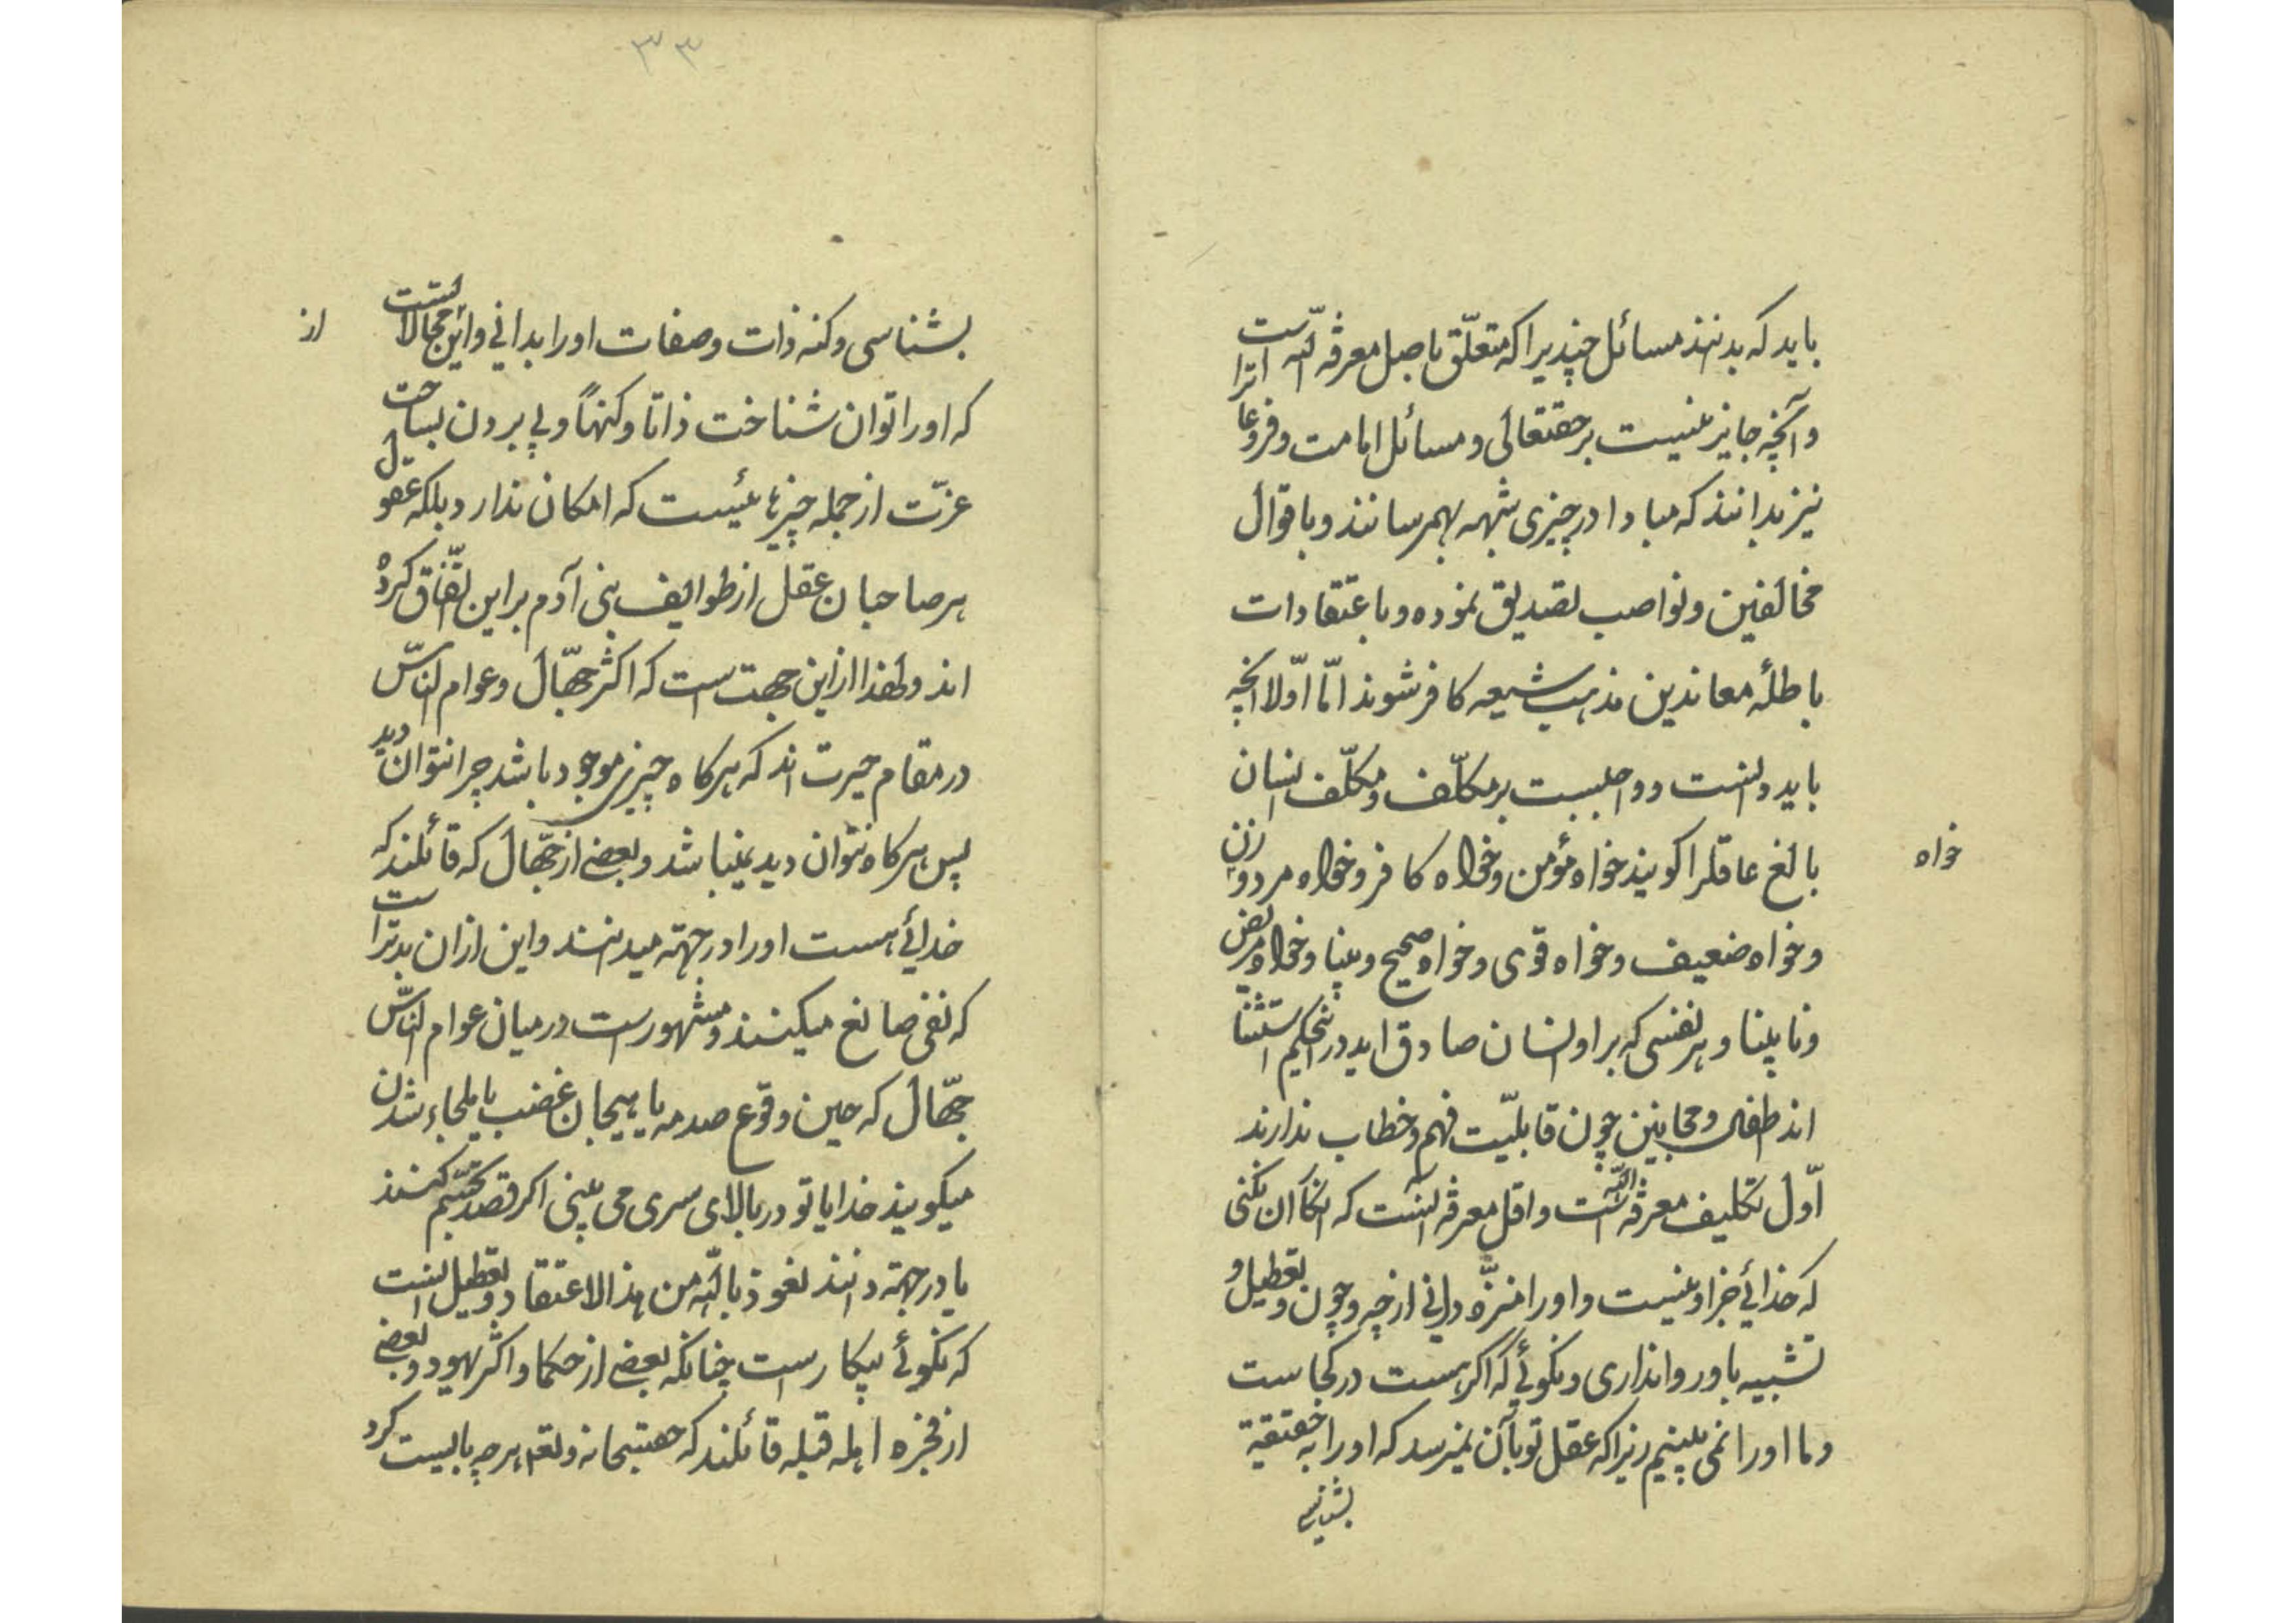 باید که بدانند مسائل چندیرا که متعلّق باصل معرفة اللّه است انرا
و آنچه جایز نیست بر حقتعالی و مسائل امامت و فروعا
نیز بدانند که مبادا در چیزی شبهه بهمرسانند و باقوال
مخالفین و نواصب تصدیق نموده و باعتقادات
باطلهٔ معاندین مذهب شیعه کافر شوند امّا اوّلا انچه
باید دانست و واجبست بر مکلّف و مکلّف انسان
بالغ عاقلرا کویند خواه مؤمن و خواه کافر و خواه مرد و زن
خواه
و خواه ضعیف و خواه قوی و خواه صحیح و بینا و خواه مریض
و نابینا و هر نفسی که بر او انسان صادق اید در اینحکیم استثنا
اند طفل و مجانین چون قابلیّت فهم و خطاب ندارند
اوّل تکلیف معرفة اللّه است و اقل معرفة انست که انکار ان نکنی
که خدائی جز او نیست و اورا منزّه دانی از چه و چون و تعطیل و
تشبیه باو روا نداری و نکوئی که اکر هست در کجاست
و ما اورا نمی بینیم زیرا که عقل تو بآن نمیرسد که اورا به حقیقة
بشناسی
۳۳
بشناسی و کنه ذات و صفات اورا بدانی و این محالاتست
از
که اورا توان شناخت ذاتا و کنهاً و پی بردن بساحت
عزّت از جمله چیزهائیست که امکان ندارد بلکه عقول
هر صاحبان عقل از طوایف بنی آدم بر این اتّفاق کرده
اند و لهذا از این جهت است که اکثر جهّال و عوام النّاس
در مقام حیرت اند که هرکاه چیزی موجود باشد چرا نتوان دید
پس هرکاه نتوان دید نمیباشد و بعضی از جهّال که قائلند که
خدائی هست اورا در جهته میدانند و این ازان بدتر است
که نفی صانع میکنند و مشهور است در میان عوام النّاس
جهّال که حین وقوع صدمه یا هیجان غضب یا ملجاء شدن
میکویند خدایا تو در بالای سری می بینی اکر قصد تجسّم کنند
یا در جهة دانند نعوذ باللّه من هذا الاعتقاد و تعطیل انست
که نکوئی بیکار است چنانکه بعضی از حکما و اکثر یهود و بعضی
از فجره اهله قبله قائلند که حقسبحانه و تعم هر چه بایست کرد